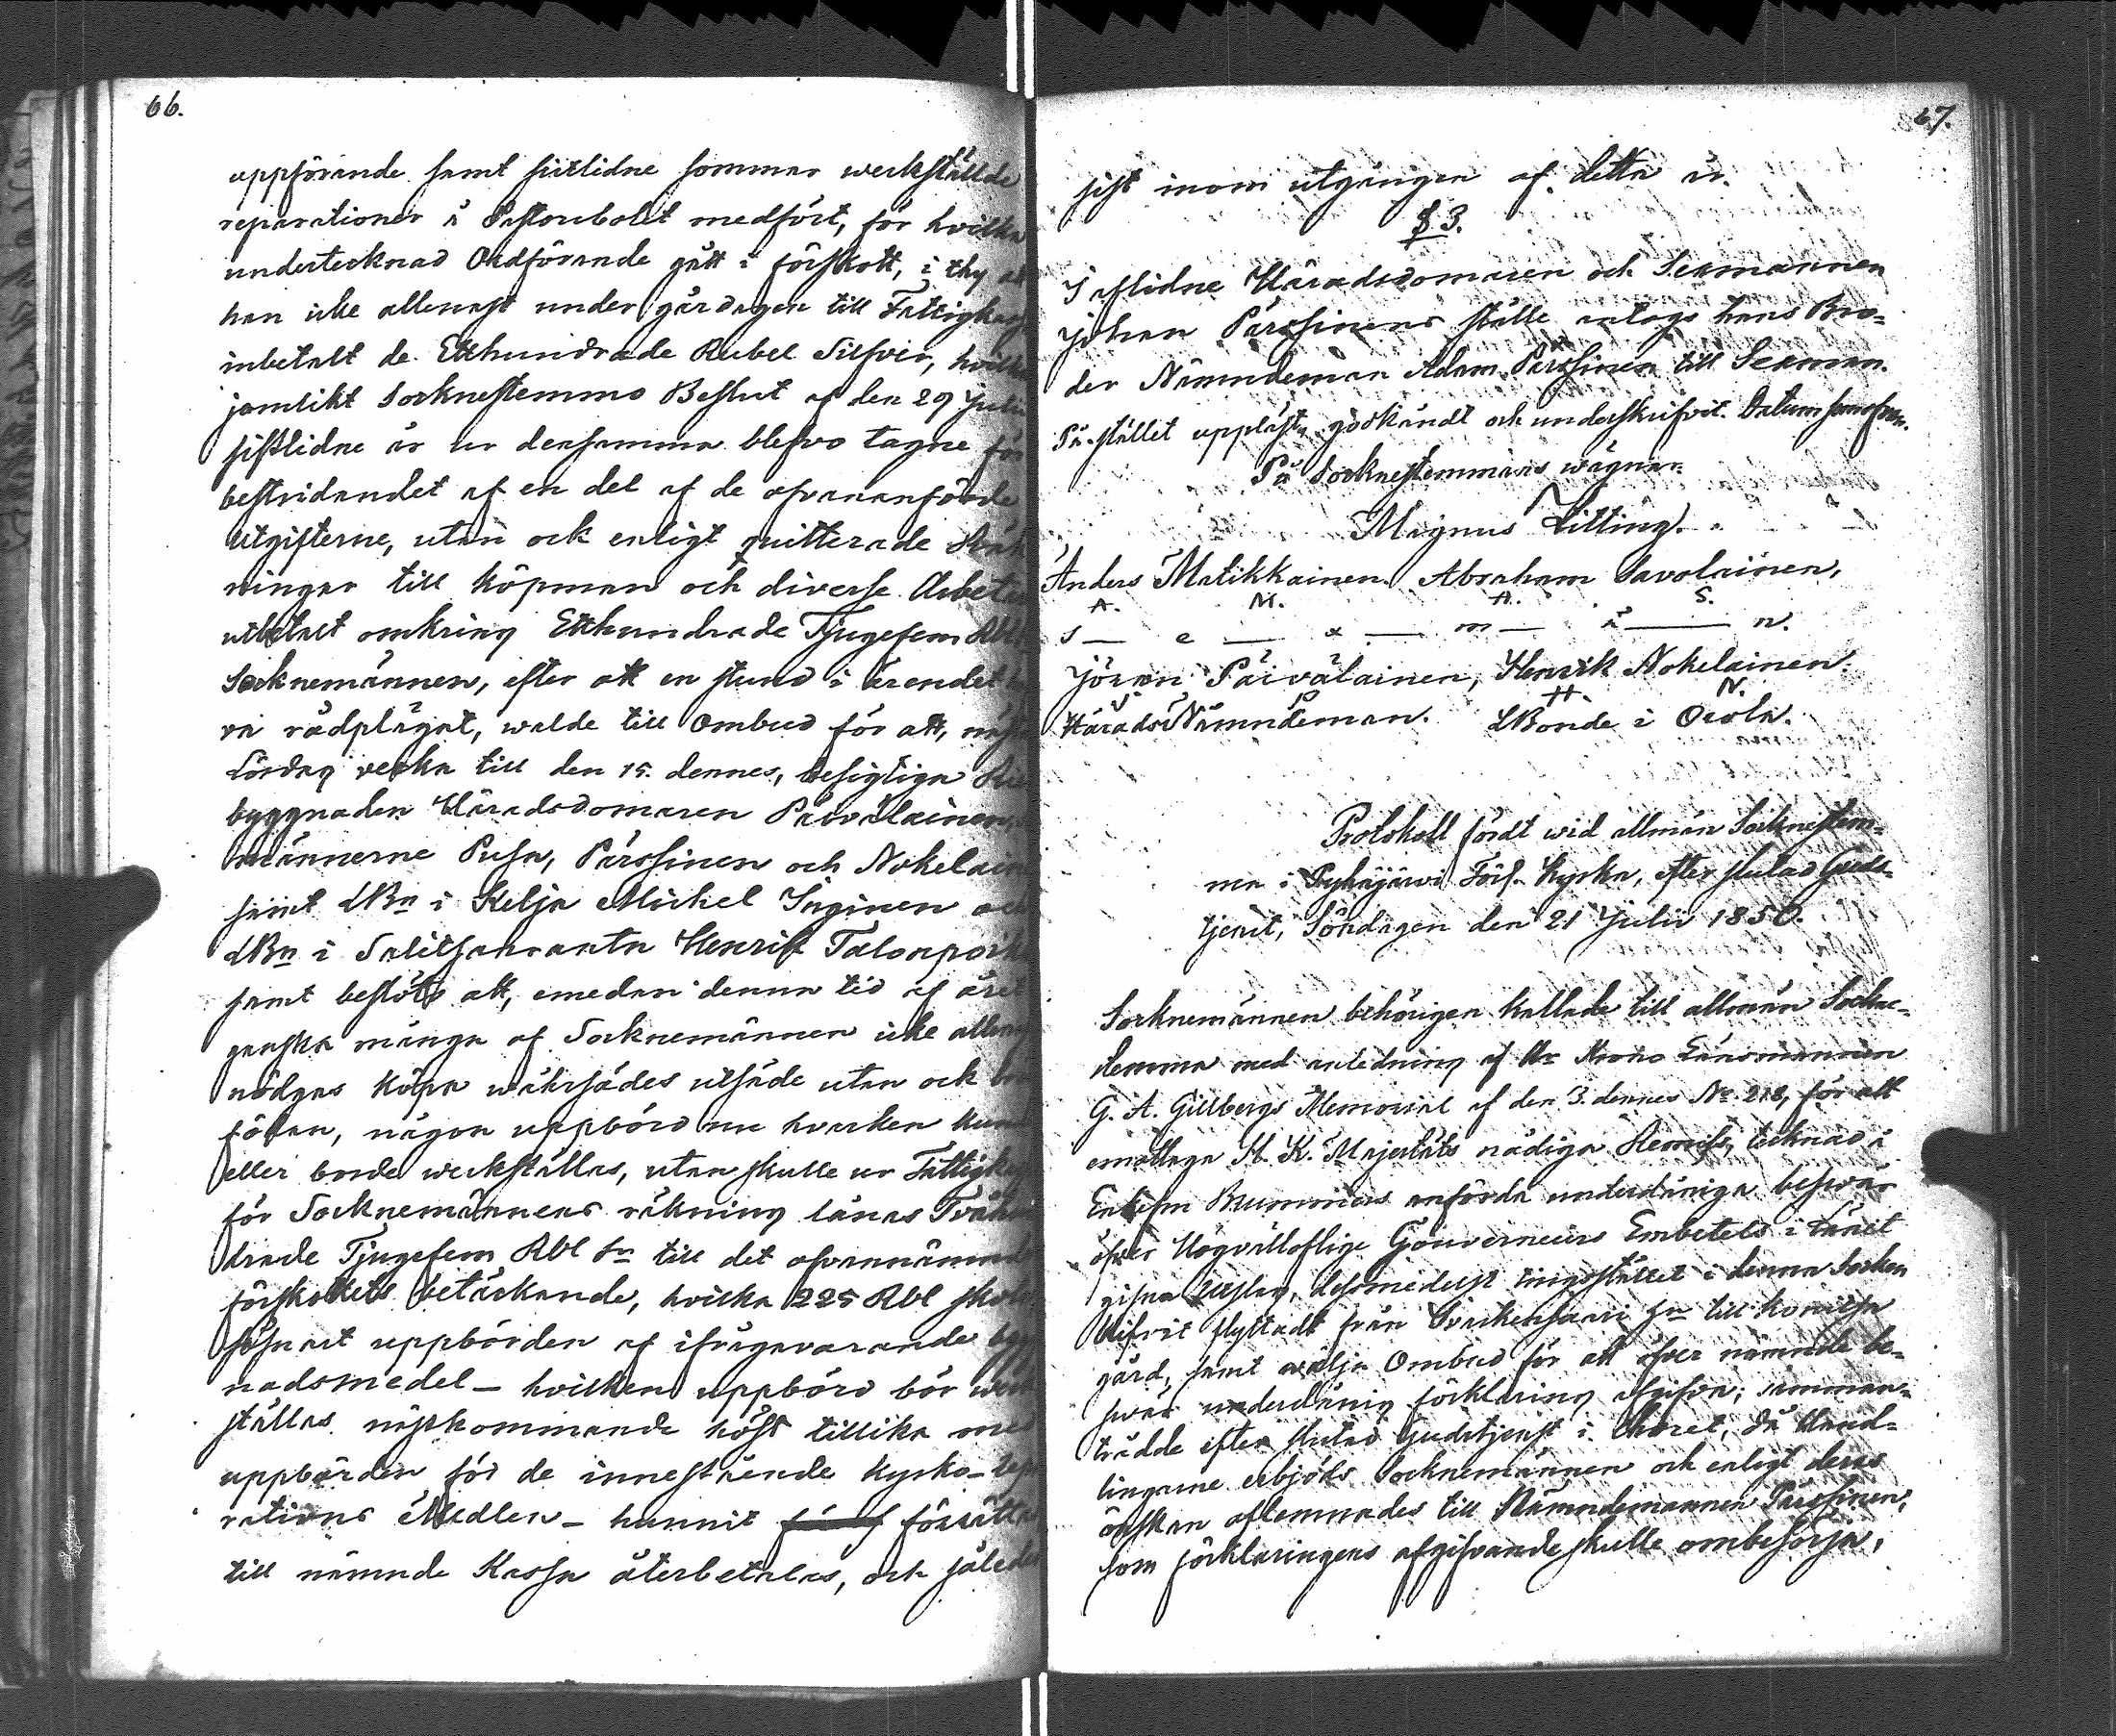 66.
uppförande samt sistlidne sommar werkställde
reparationer å Pastorsbolet medfört, för hvilka
undertecknad Ordförande gått i förskott, i thy at
han icke allenast under gårdagen till Fattigkas
inbetalt de Etthundrade Rubel Silfver, hvilka
jemlikt Sockenstemmo Beslut af den 29 Julii
sistlidne år ur densamma blefvo tagne för
bestridandet af en del af de ofvananförde
utgifterne, utan ock enligt quitterade Räk
ningar till Köpmän och diverse Arbeta
utbetalt omkring Etthundrade Tjugefem Rbl
Socknemännen, efter att en stund i ärendet ha
va rådplägat, walde till Ombud för att, näst
Lördag vecka till den 15. dennes, besigtiga
byggnaden Häradsdomaren Päivaläinen,
männerne Pusa, Pärssinen och Nokelain
samt LBn i Kelja Mickel Inginen och
LBn i Salitsanranta Henrik Talonpoik
samt beslöts att, emedan denna tid af året
ganska många af Socknemännen icke allenas
nödgas köpa wåhrsädes utsäde utan ock
födan, någon uppbörd nu hvarken kund
eller borde werkställas, utan skulle ur Fattigka
för Socknemännens räkning lånas Tvåhun
drade Tjugefem Rbl Sr till det ofvannämnde
förskottets betäckande, hvilka 225 Rbl skola
såsnart uppbörden af ifrågavarande byg
nadsmedel – hvilken uppbörd bör werk
ställas nästkommande höst tillika med
uppbörden för de innestående Kyrko-repa
rations Medlen – hunnit försättas
till nämnde Kassa återbetalas, och således
67.
sist inom utgången af detta år.
§ 3.
I aflidne Häradsdomaren och Sexmannen
Johan Pärssinens ställe antogs hans Bro-
der Nämndeman Adam Pärssinen till Sexman.
På stället uppläst, godkändt och underskrifvit. Datum som ofvan.
På Sockenstemmans wägnar.
Magnus Litting.
Anders Matikkainen. Abraham Savolainen,
A. M. A. S.
s — e — x — m — ä — n.
Jöran Päivaläinen, Henrik Nokelainen.
J P H. N.
Härads Nämndeman. LBonde i Orola.
Protokoll fördt wid allmän Socknestem-
ma i Pyhäjärwi Förs. Kyrka, efter slutad Guds-
tjenst, Söndagen den 21 Julii 1850.
Socknemännen behörigen kallade till allmän Sockne-
stemma med anledning af Hr Krono Länsmannen
G. A. Gillbergs Memorial af den 3. dennes No 218, för att
emottaga H. K. Majestäts nådiga Remiss, tecknad å
Enkefru Brummers anförda underdåniga beswär
öfver Högvällofliga Gouverneurs Embetets i Länet
gifna Utslag, dessmedelst tingsstället i denna Socken
blifvit flyttadt från Svarkensaari Jn till Konnitsa
gård, samt wälja Ombud för att öfver nämnde be-
swär underdånig förklaring afgifva; samman-
trädde efter slutad Gudstjenst i Choret, då Hand-
lingarne erbjöds Socknemännen och enligt deras
önskan aflemnades till Nämndemannen Pärssinen,
som förklaringens afgifvande skulle ombesörja,